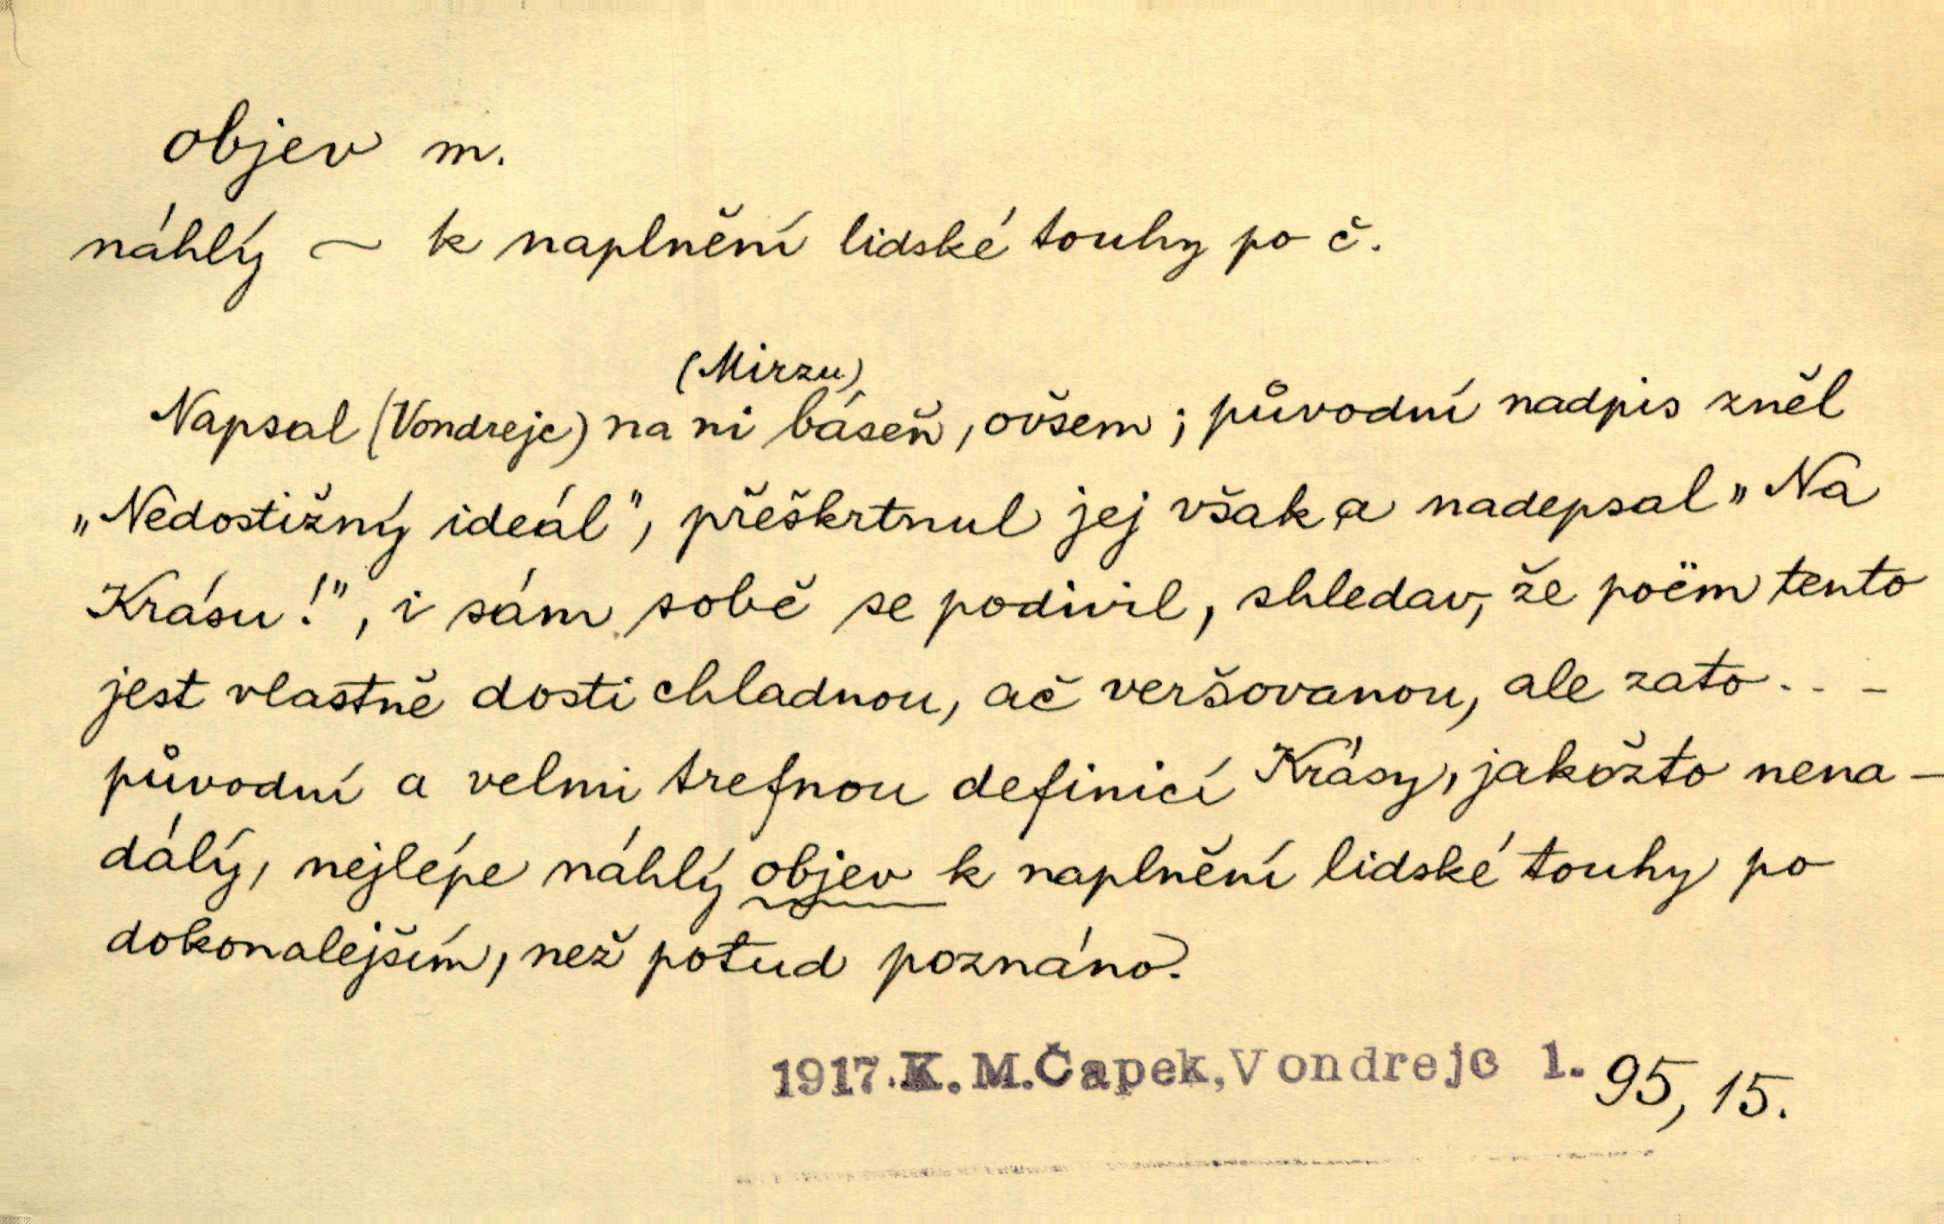 objev m.
náhlý ~ k naplnění lidské touhy po č.
(Mirzu)
Napsal (Vondrejc) na ni báseň, ovšem; původní nadpis zněl
„Nedostižný ideál", přeškrtnul jej však a nadepsal „Na
Krásu!", i sám sobě se podivil, shledav, že poëm tento
jest vlastně dosti chladnou, ač veršovanou, ale zato...
původní a velmi trefnou definicí Krásy, jakožto nena-
dálý, nejlépe náhlý objev k naplnění lidské touhy po
dokonalejším, než potud poznáno.
1917.K.M.Čapek,Vondrejc 1. 95, 15.